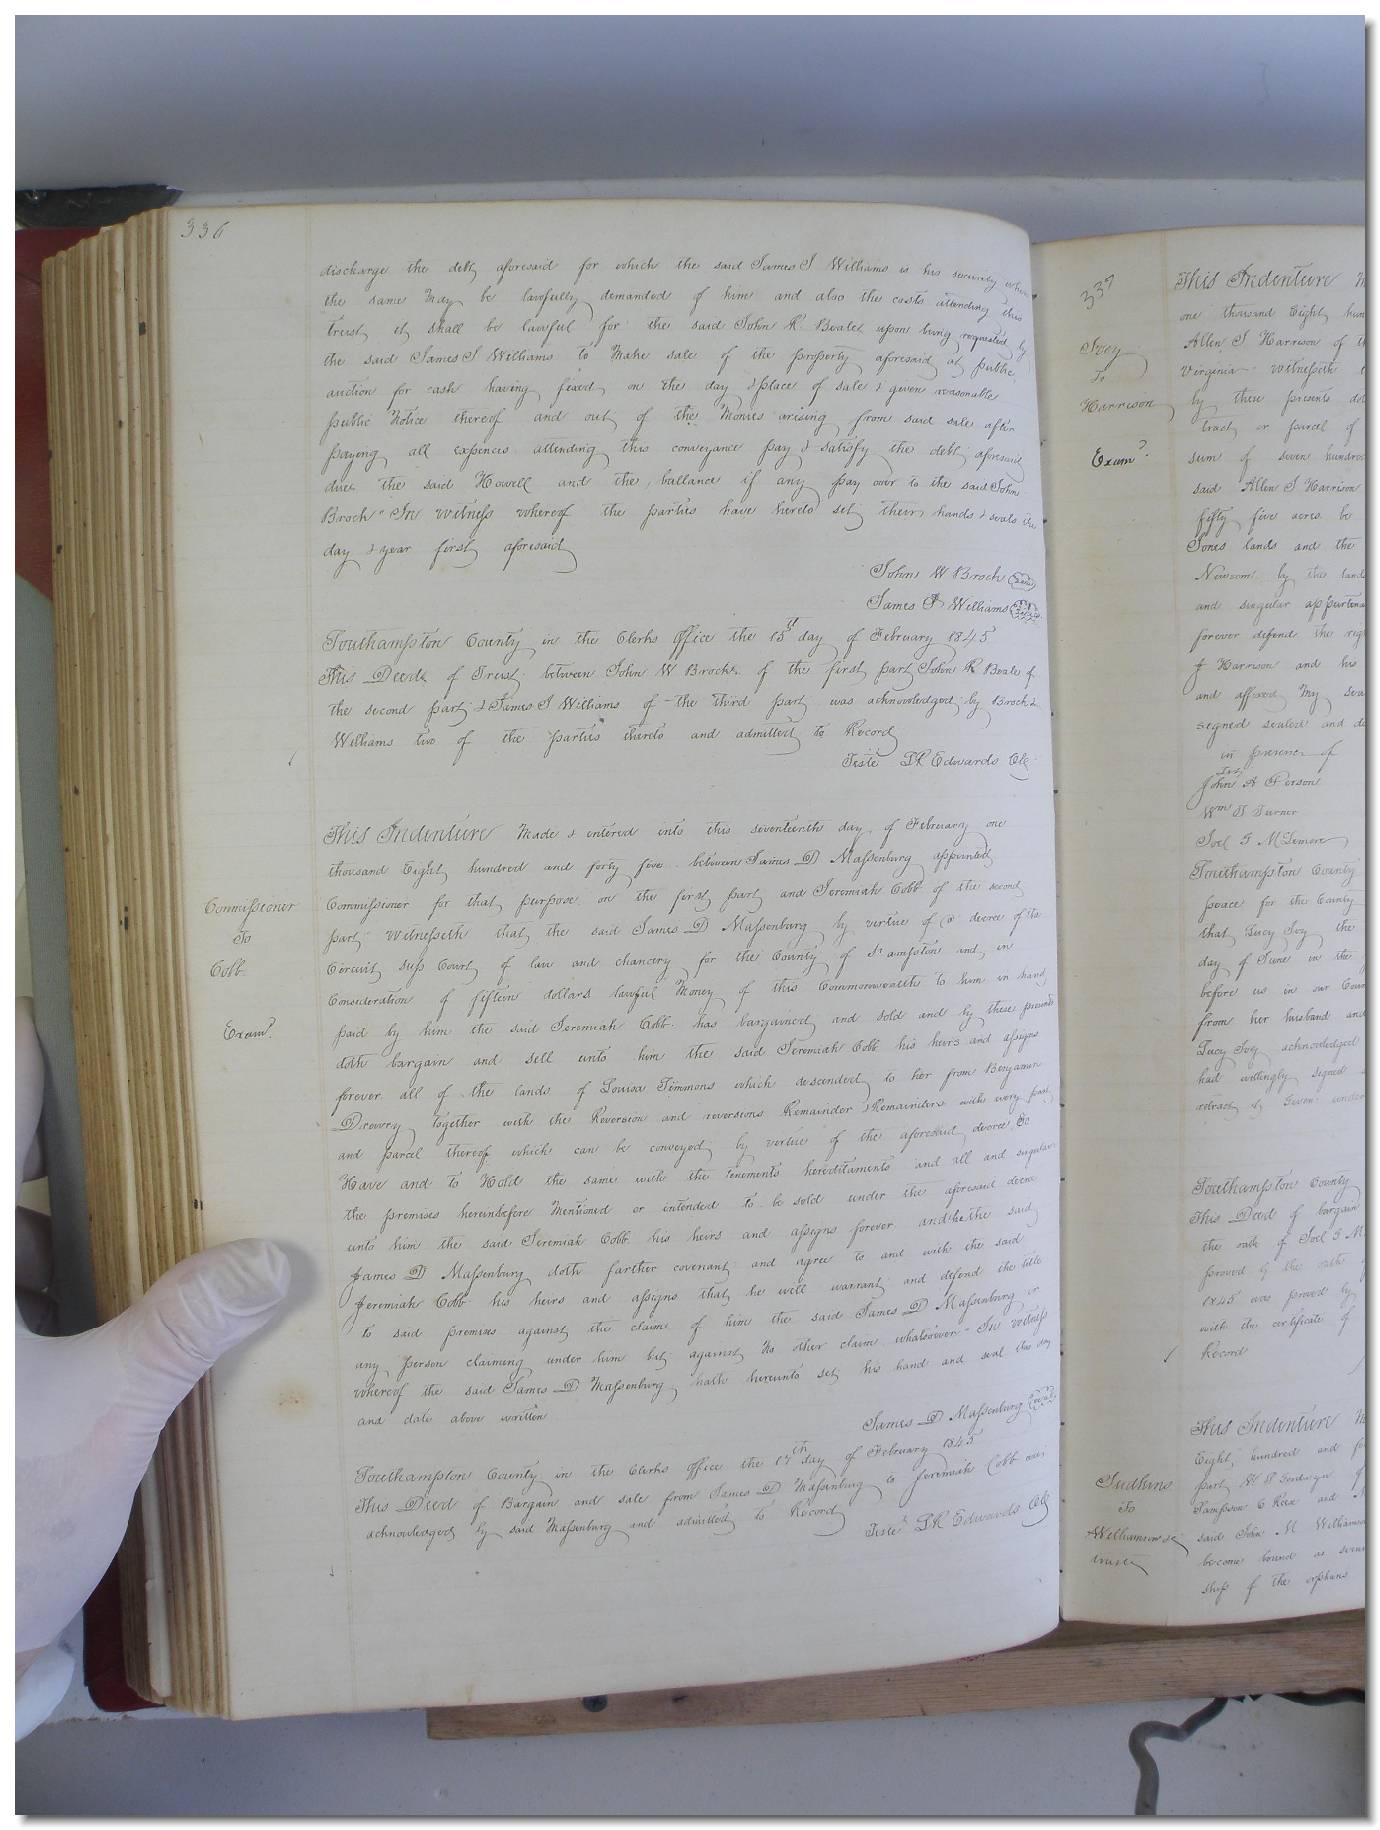 336
discharge the debt aforesaid for which the said James S Williams is his security when
the same May be lawfully demanded of him and also the costs attending this
trust it shall be lawful for the said John R. Beale upon being requested by
the said James S Williams to Make sale of the property aforesaid at public
auction for cash having fixed on the day & place of sale & given reasonable
public Notice thereof and out of the Monies arising from said sale after
paying all expences attending this conveyance pay & satisfy the debt aforesaid
due the said Howell and the ballance if any pay over to the said John
Brock" In witness whereof the parties have hereto set their hands & seals the
day & year first aforesaid
John W Brock seal
James S Williams seal
Southampton County in the Clerks Office the 15 day of February 1845
This Deed of Trust between John W Brock of the first part John R Beale of
the second part & James S Williams of the third part was acknowledged by Brock &
Williams two of the parties thereto and admitted to Record
Teste LR Edwards Clk
Commissioner
To
Cobb
Exam?
This Indenture Made & entered into this seventeenth day of February one
thousand Eight hundred and forty five between James D Massenburg appointed
Commissioner for that purpose on the first part and Jeremiah Cobb of the second
part witnesseth that the said James D Massenburg by virtue of a decree of the
Circuit Sup Court of law and chancery for the County of St ampton and in
Consideration of fifteen dollars lawful Money of this Commonwealth to him in hand
paid by him the said Jeremiah Cobb has bargained and sold and by these presents
doth bargain and sell unto him the said Jeremiah Cobb his heirs and assigns
forever all of the lands of Louisa Simmons which descended to her from Benjamin
Drewry together with the Reversion and reversions Remainder & Remainders with every part
and parcel thereof which can be conveyed by virtue of the aforesaid decree To
Have and to Hold the same with the tenements hereditaments and all and singular
the premises hereinbefore Mentioned or intended to be sold under the aforesaid decree
unto him the said Jeremiah Cobb his heirs and assigns forever and he the said
James D Massenburg doth farther covenant and agree to and with the said
Jeremiah Cobb his heirs and assigns that he will warrant and defend the title
to said premises against the claim of him the said James D Massenburg or
any person claiming under him but against No other claim whatsoever" In witness
whereof the said James D Massenburg hath hereunto set his hand and seal the day
and date above written
James D Massenburg seal
Southampton County in the Clerks Office the 17th day of February 1845
This Deed of Bargain and sale from James D Massenburg to Jeremiah Cobb was
acknowledged by said Massenburg and admitted to Record
Teste LR Edwards Clk
337
Ivey
To
Harrison
Exam?
This Indenture
one thousand Eight hun
Allen J Harrison of
Virginia witnesseth
by these presents
tract or parcel of
sum of seven hundred
said Allen J Harrison
fifty five acres be
Jones lands and the
Newsom by the
and singular appurtena
forever defend the
J Harrison and his
and affixed My
signed sealed and
in presence of
John A Person
Wm H Turner
Joel G McLemore
Southampton County
peace for the County
that Lucy Ivy the
day of June in the
before us in our Coun
from her husband and
Lucy Ivy acknowledged
had willingly signed
retract it Given under
Southampton County
This Deed of bargain
the oath of Joel G M
proved by the oath
1845 was proved by
with the certificate of
Record
Judkins
To
Williamson
trustee
This Indenture
Eight hundred and
part
Sampson C Reese and
said John M Williamson
become bound as
ship of the orphans